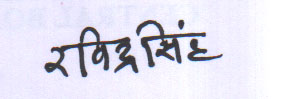 रविद्र सिंह